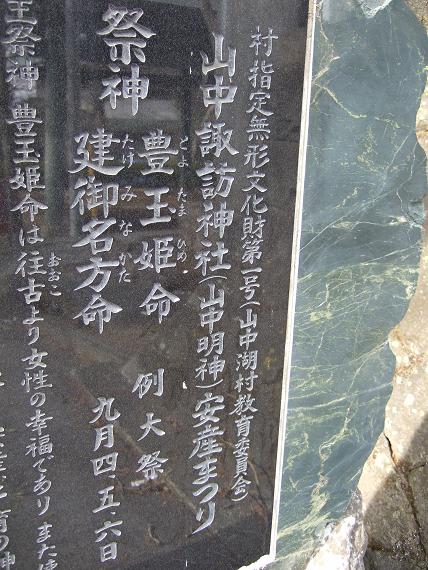 村指定無形文化財第一号(山中湖村教育委員会)
山中諏訪神社(山中明神)安産まつり
祭神 豊玉姫命 例大祭
とよ たま ひめ
建御名方命 九月四、五、六日
たけ み な かた
主祭神 豊玉姫命は往古より女性の幸福であり また
おおこ